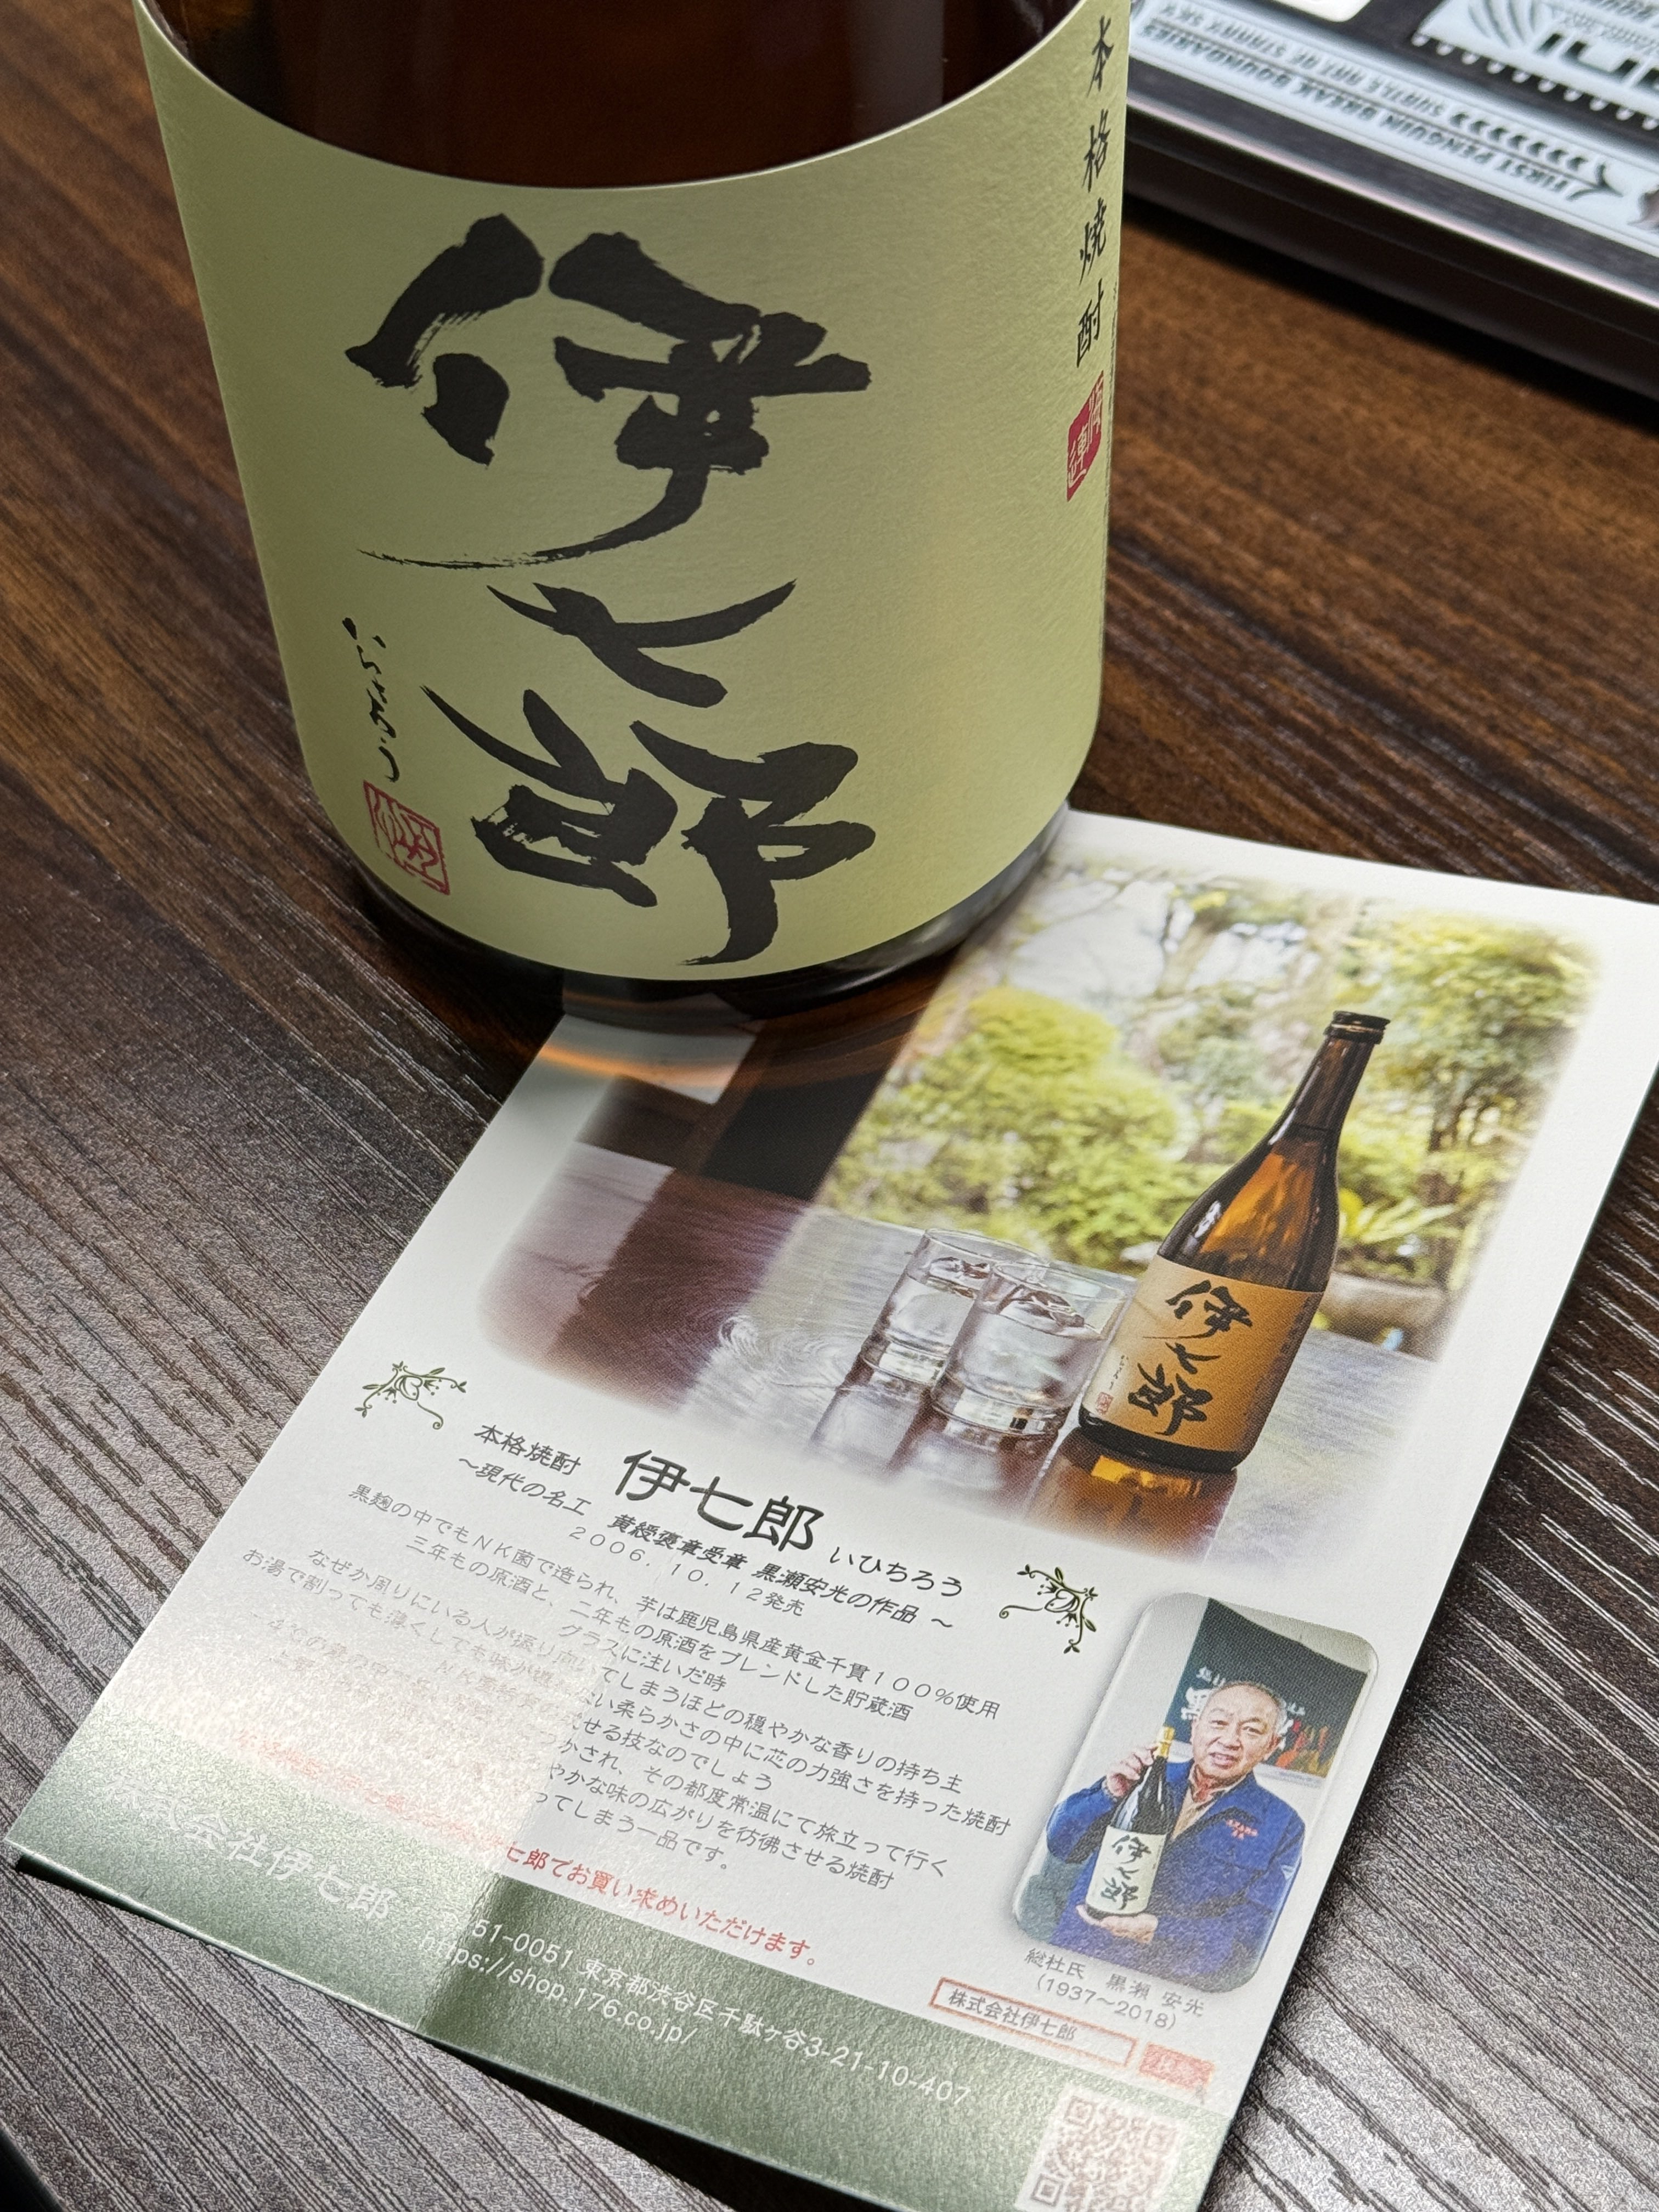 本格焼酎
伊七郎
いひちろう
FIRST PENGUIN BREAK BOUNDARIES
SUBTLE ART OF STARRY SKY
伊七郎
本格焼酎 伊七郎 いひちろう
～現代の名工 黄綬褒章受章 黒瀬安光の作品～
2006.10.12発売
黒麹の中でもNK菌で造られ、芋は鹿児島県産黄金千貫100%使用
三年もの原酒と、二年もの原酒をブレンドした貯蔵酒
グラスに注いだ時
なぜか周りにいる人が振り向いてしまうほどの穏やかな香りの持ち主
お湯で割っても薄くしても味が
ない柔らかさの中に芯の力強さを持った焼酎
せる技なのでしょう
かされ、その都度常温にて旅立って行く
やかな味の広がりを彷彿させる焼酎
ってしまう一品です。
七郎でお買い求めいただけます。
伊七郎
総杜氏 黒瀬 安光
(1937～2018)
株式会社伊七郎
株式会社伊七郎
51-0051 東京都渋谷区千駄ヶ谷3-21-10-407
https://shop.176.co.jp/